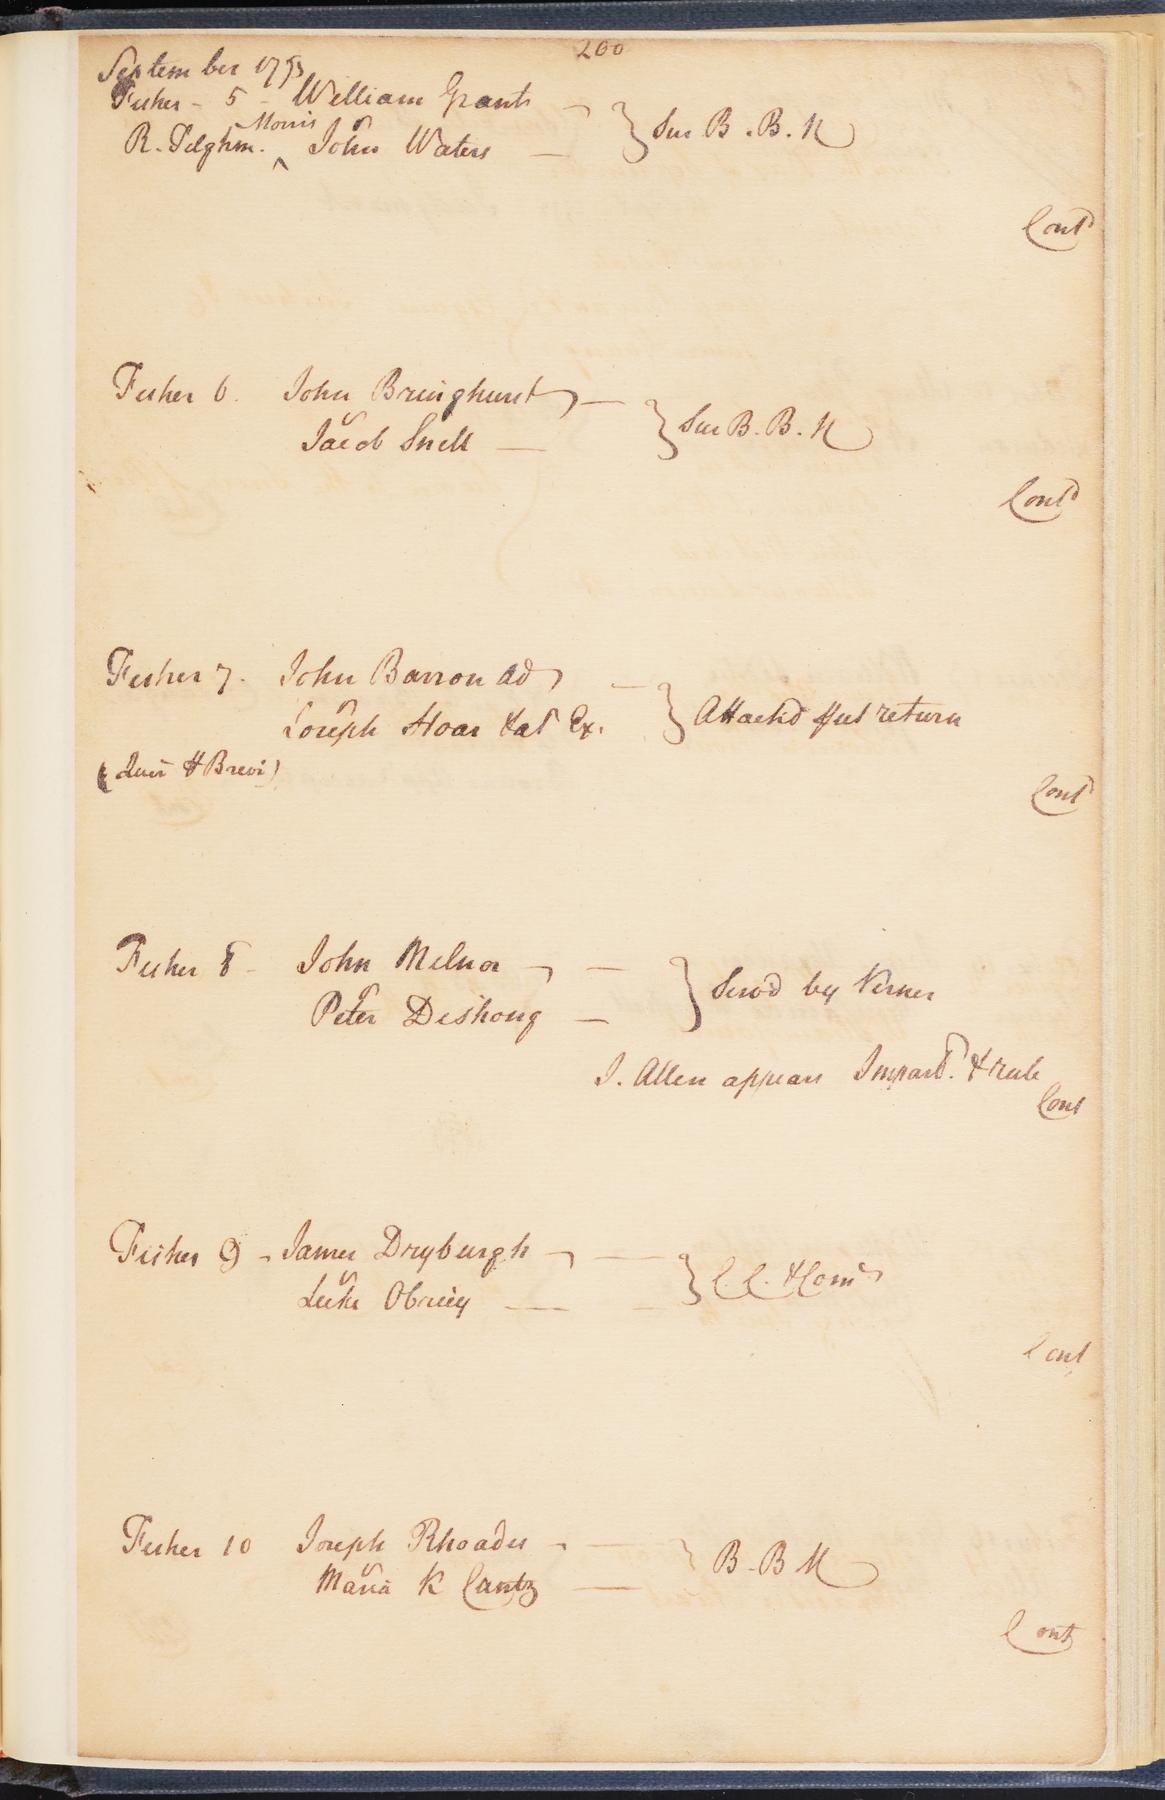 200
September 1773
Fisher - 5 - William Grant
Morris
R. Tilghm. ^ John Waters
} Sur B. B. N
Cont
Fisher 6. John Bringhurst
Jacob Snell
} Sur B. B. N
Contd
Fisher 7. John Barron ad
Joseph Hoar &al Ex.
} Attachd &ca return
( & Brevi)
Cont
Fisher 8 - John Melnor
Peter Deshong
} Servd by Verner
J. Allen appears Imparl. & rule
Cont
Fisher 9 - James Dryburgh
Luke Obrien
} C. C. & Com
Cont
Fisher 10 Joseph Rhoades
Maria K Cantz
} B. B N
Cont